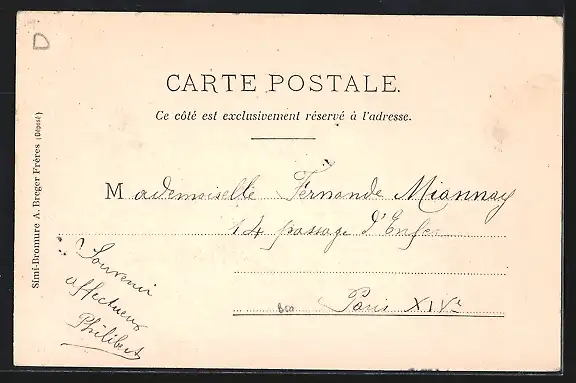 D
CARTE POSTALE.
Ce côté est exclusivement réservé à l'adresse.
Mademoiselle Fernande Miannay
14 passage d'Enfer
Paris XIVe
Souvenir
affectueux
Philibert
Simi-Bromure A. Breger Frères (Déposé)